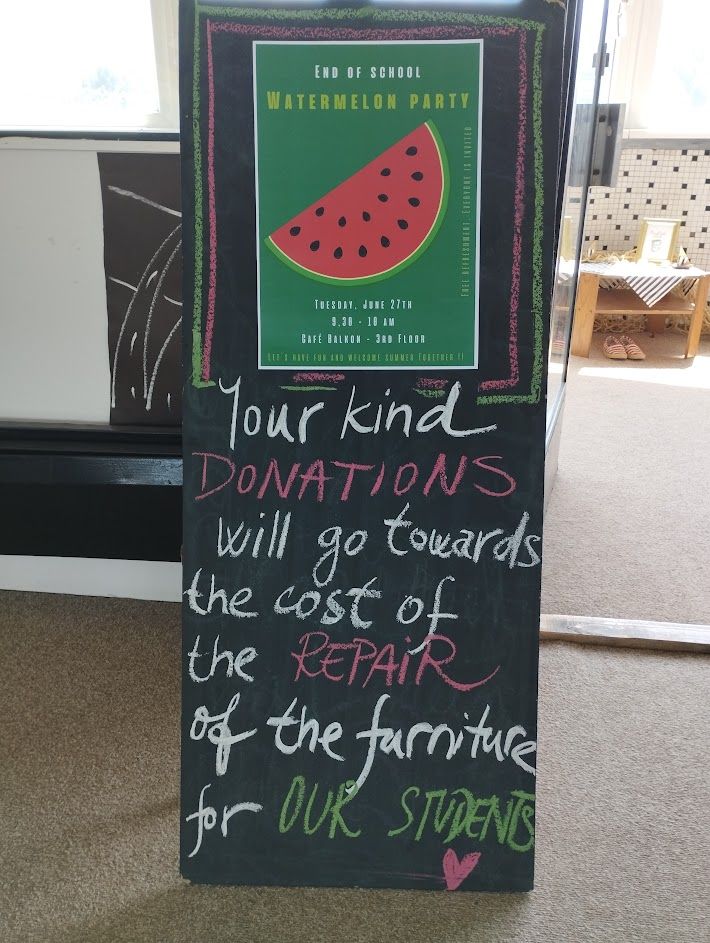 END OF SCHOOL
WATERMELON PARTY
FREE REFRESHMENT. EVERYONE IS INVITED
TUESDAY, JUNE 27TH
9.30 - 10 AM
CAFÉ BALKON - 3RD FLOOR
LET'S HAVE FUN AND WELCOME SUMMER TOGETHER !!
Your kind
DONATIONS
will go towards
the cost of
the REPAIR
of the furniture
for OUR STUDENTS